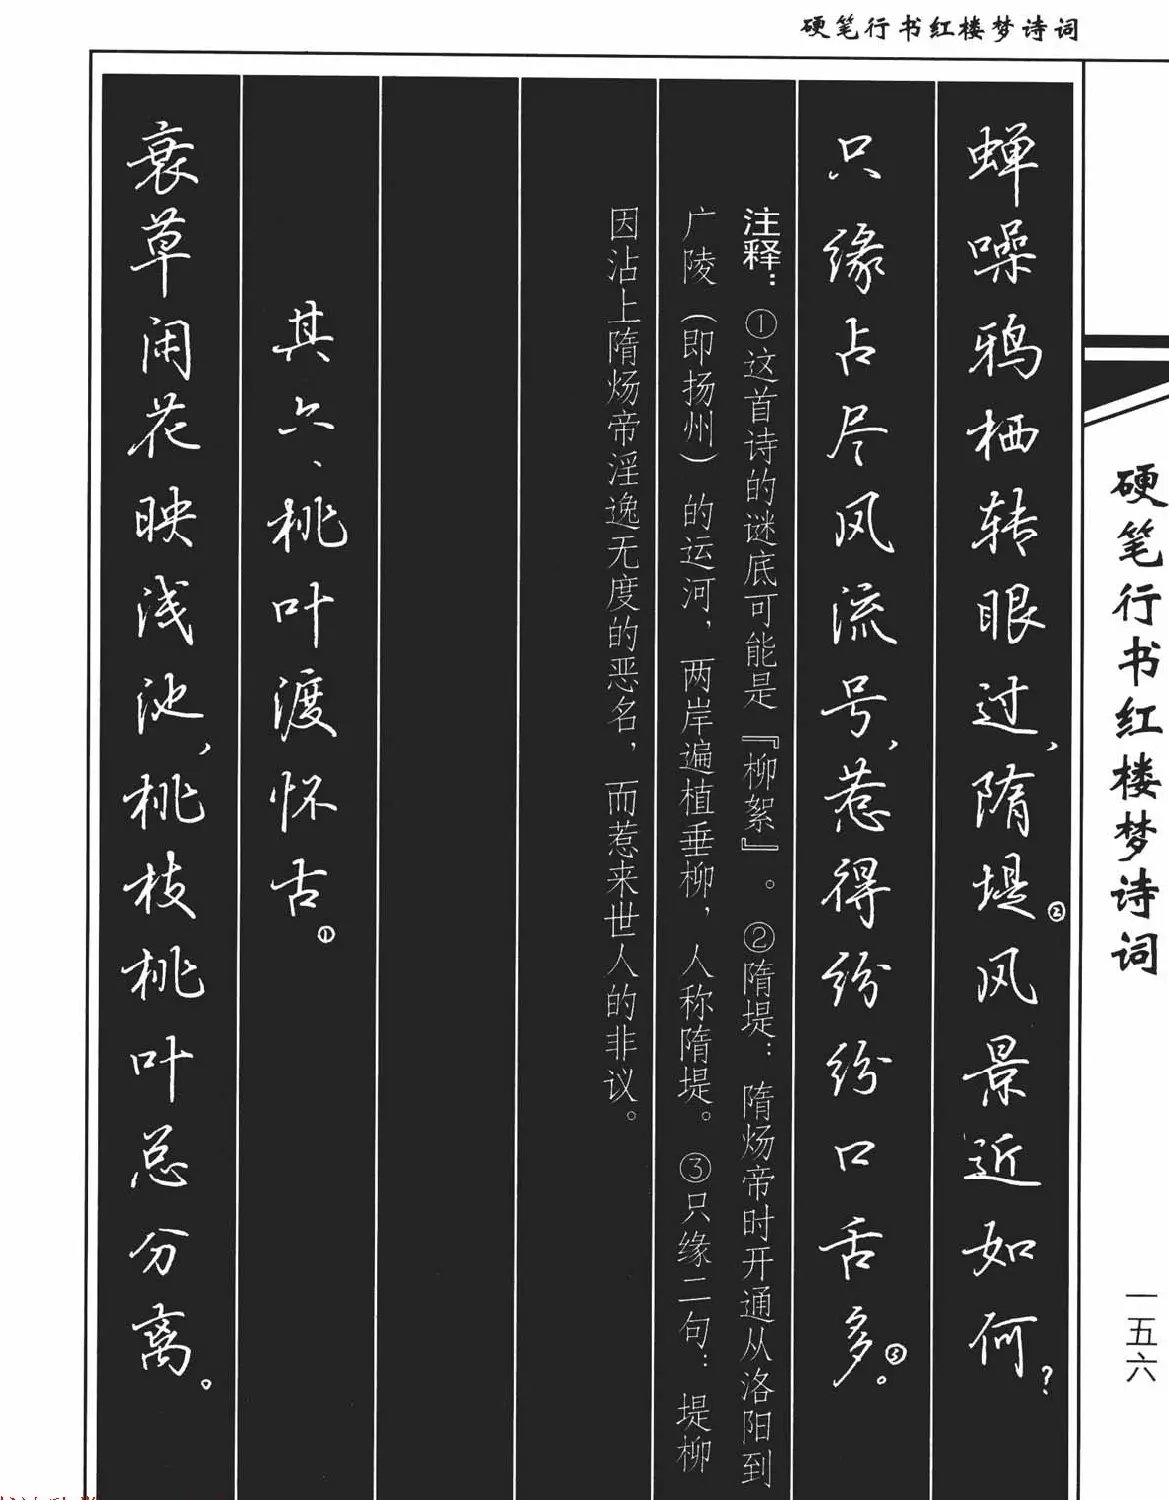 硬笔行书红楼梦诗词
硬笔行书红楼梦诗词
一五六
蝉噪鸦栖转眼过，隋堤②风景近如何？
只缘占尽风流号，惹得纷纷口舌多。③
注释：①这首诗的谜底可能是『柳絮』。②隋堤：隋炀帝时开通从洛阳到
广陵（即扬州）的运河，两岸遍植垂柳，人称隋堤。③只缘二句：堤柳
因沾上隋炀帝淫逸无度的恶名，而惹来世人的非议。
其六、桃叶渡怀古。①
衰草闲花映浅池，桃枝桃叶总分离。